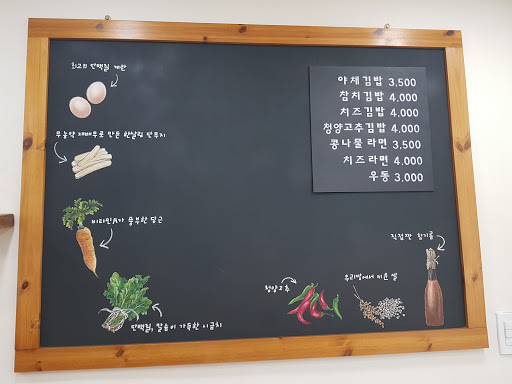 최고의 단백질 계란
무농약 재배무로 만든 한살림 단무지
비타민A가 풍부한 당근
단백질, 칼슘이 가득한 시금치
청양고추
우리땅에서 지은 쌀
직접짠 참기름
야채김밥 3,500
참치김밥 4,000
치즈김밥 4,000
청양고추김밥 4,000
콩나물라면 3,500
치즈라면 4,000
우동 3,000